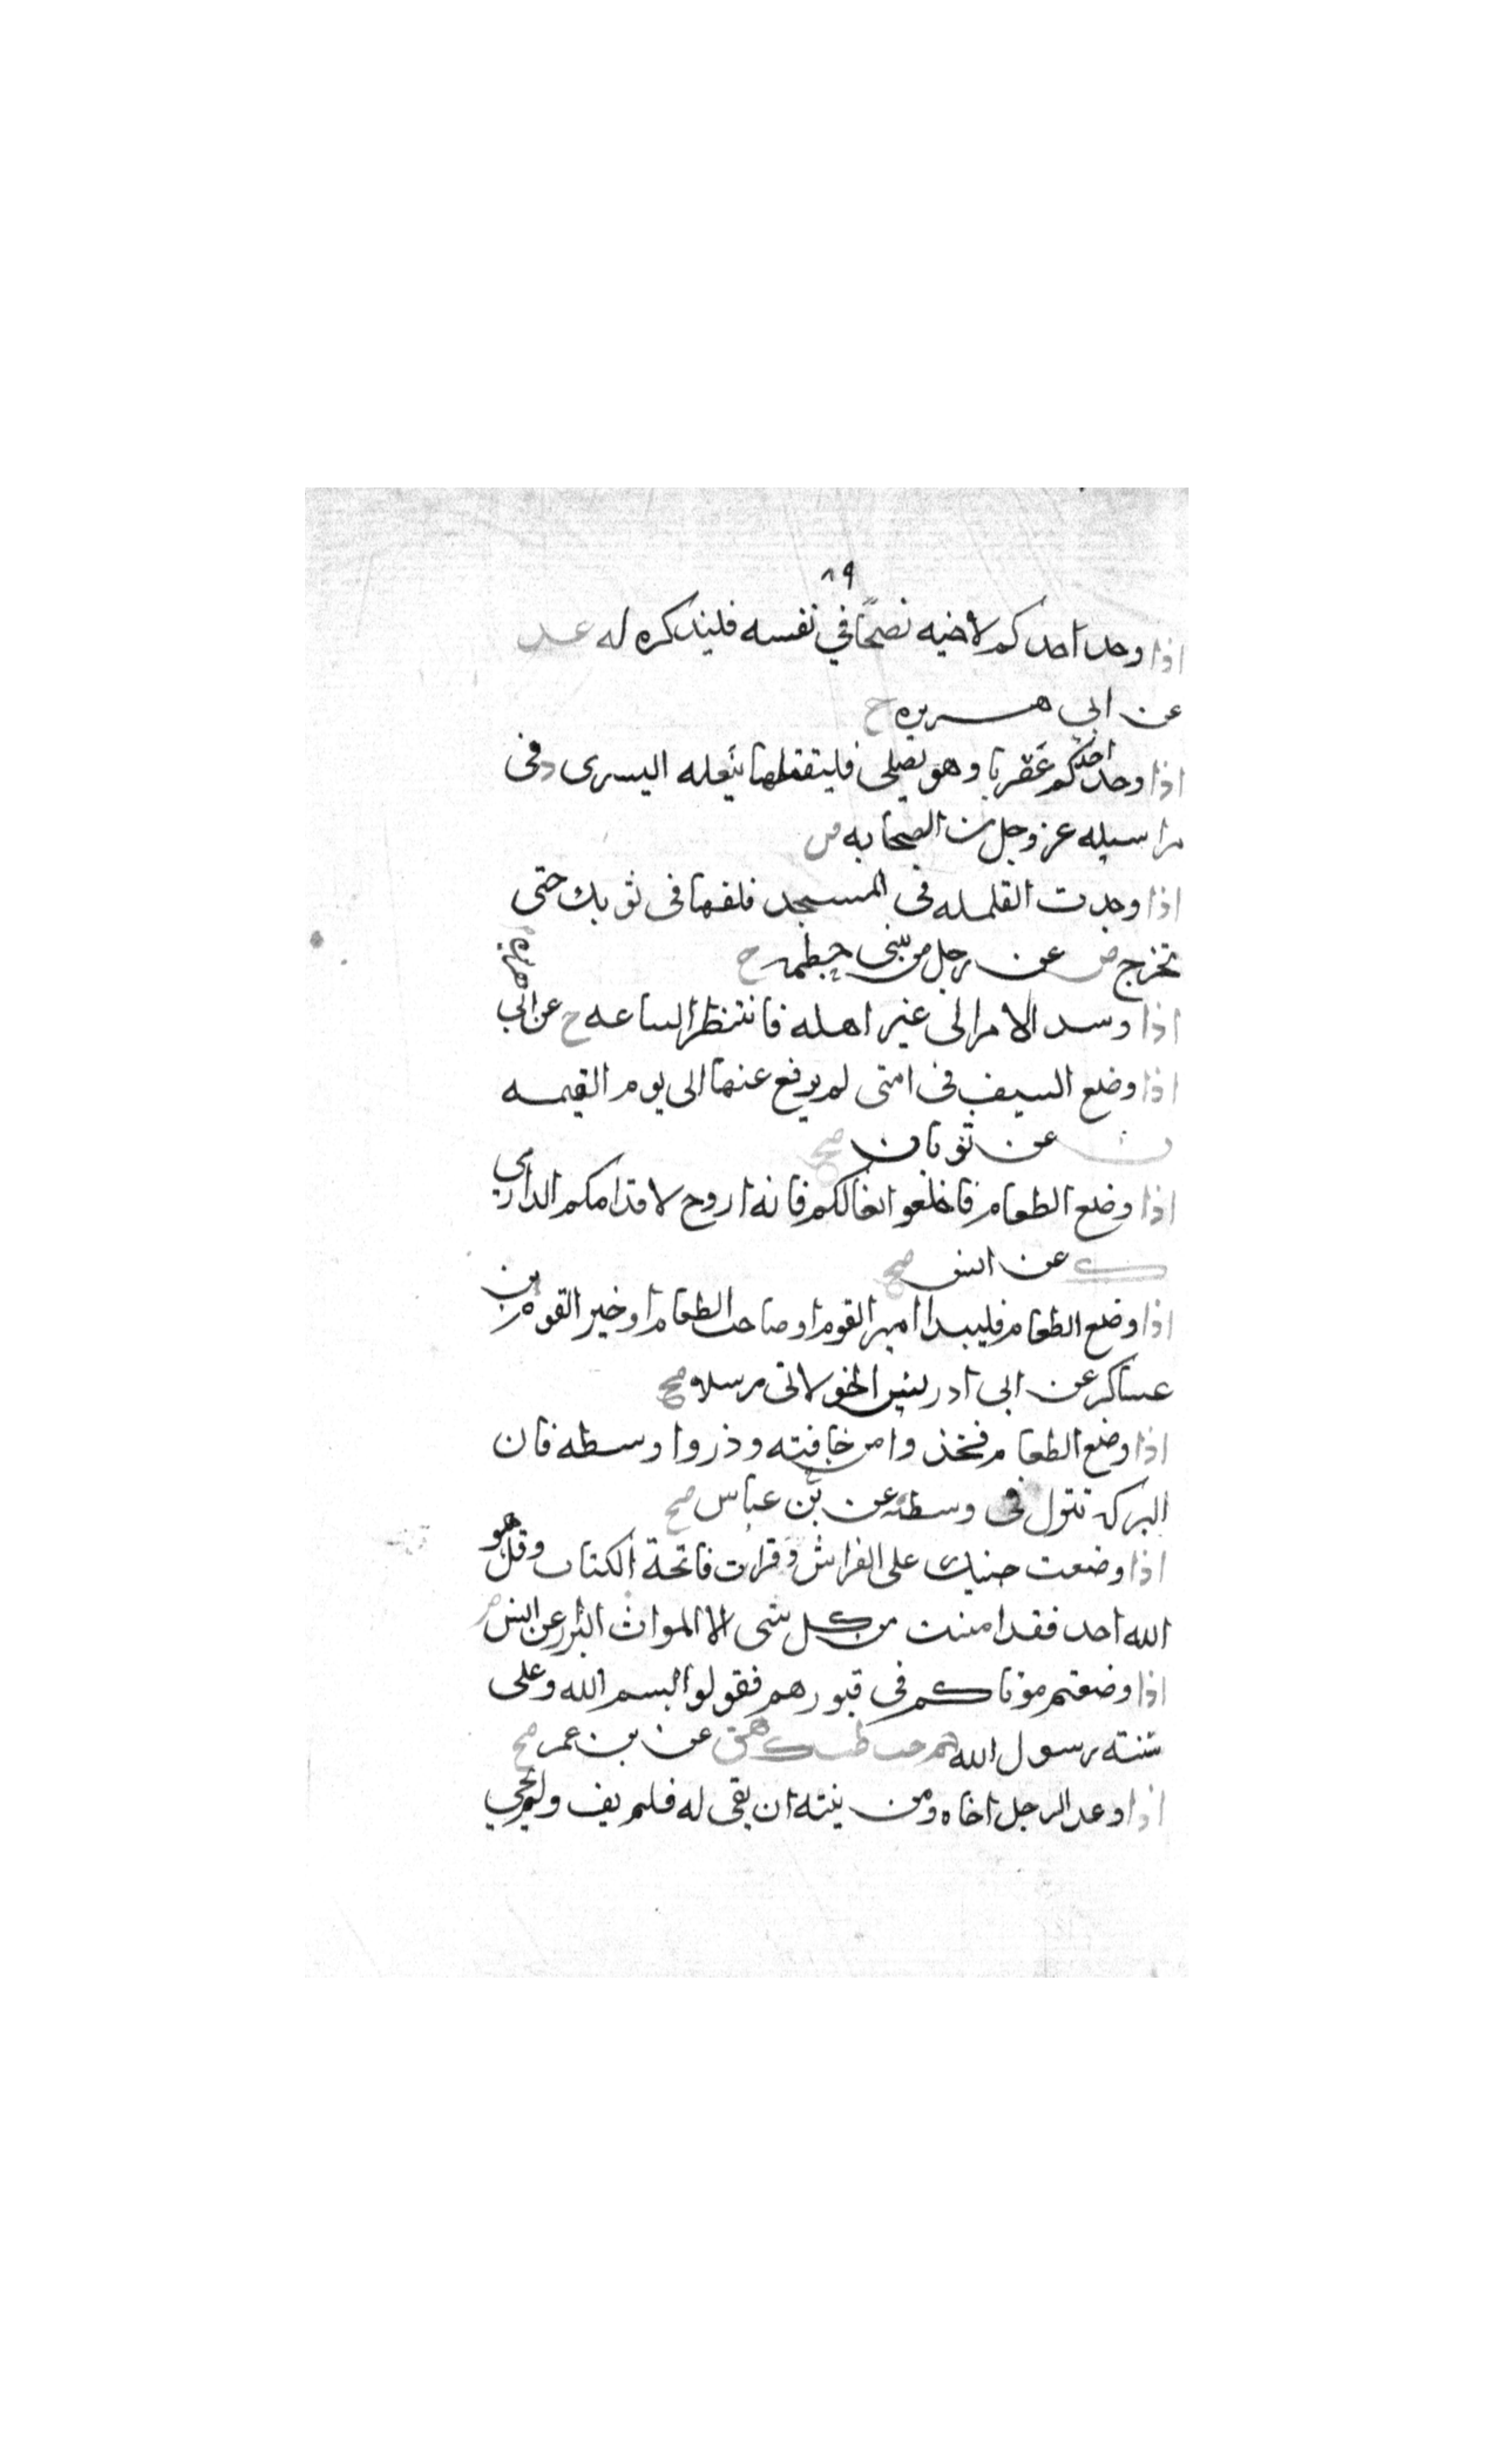 ٨٩
اذا وجد احدكم لاخيه نصحًا في نفسه فليذكره له عد
عن ابي هريره ح
اذا وجد احدكم عقربا وهو يصلى فليقتلها بنعله اليسرى د فى
مراسيله عن رجل من الصحابه ض
اذا وجدت القمله فى المسجد فلفها فى ثوبك حتى
تخرج ص عن رجل من بنى خطمه ح
اذا وسد الامر الى غير اهله فانتظر الساعه خ عن ابي هريره
اذا وضع السيف فى امتى لم يرفع عنها الى يوم القيمه
ت عن ثوبان صح
اذا وضع الطعام فاخلعوا نعالكم فانه اروح لاقدامكم الدارمي
ك عن انس صح
اذا وضع الطعام فليبدا امير القوم او صاحب الطعام او خير القوم بن
عساكر عن ابى ادريس الخولانى مرسلا صح
اذا وضع الطعام فخذوا من حافته وذروا وسطه فان
البركه تنزل فى وسطه ه عن بن عباس صح
اذا وضعت جنبك على الفراش وقرات فاتحة الكتاب وقل هو
الله احد فقد امنت من كل شى الا الموت البزار عن انس ض
اذا وضعتم موتاكم فى قبورهم فقولوا بسم الله وعلى
سنته رسول الله حم حب طب ك هق عن بن عمر صح
اذا وعد الرجل اخاه ومن نيته ان يفى له فلم يف ولم يجي